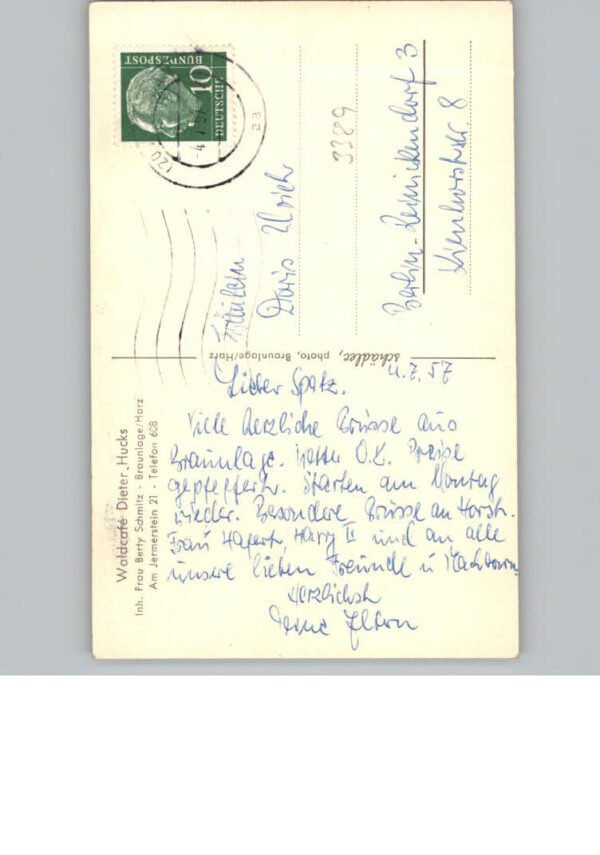 Waldcafé Dieter Hucks
Inh. Frau Berty Schmitz · Braunlage/Harz
Am Jermerstein 21 · Telefon 608
4.7.57
Lieber Spatz.
Viele herzliche Grüsse aus
Braunlage. Wetter O.K. Preise
gepfeffert. Starten am Montag
wieder. Besondere Grüsse an Horst.
Frau Hagert, Harry II und an alle
unsere lieben Freunde u Nachbarn
Herzlichst
Deine Eltern
schädler, photo, Braunlage/Harz
DEUTSCHE
BUNDESPOST
10
(20
aa
Fräulein
Doris
3389
Berlin-Reinickendorf 3
Kienhorststr. 8